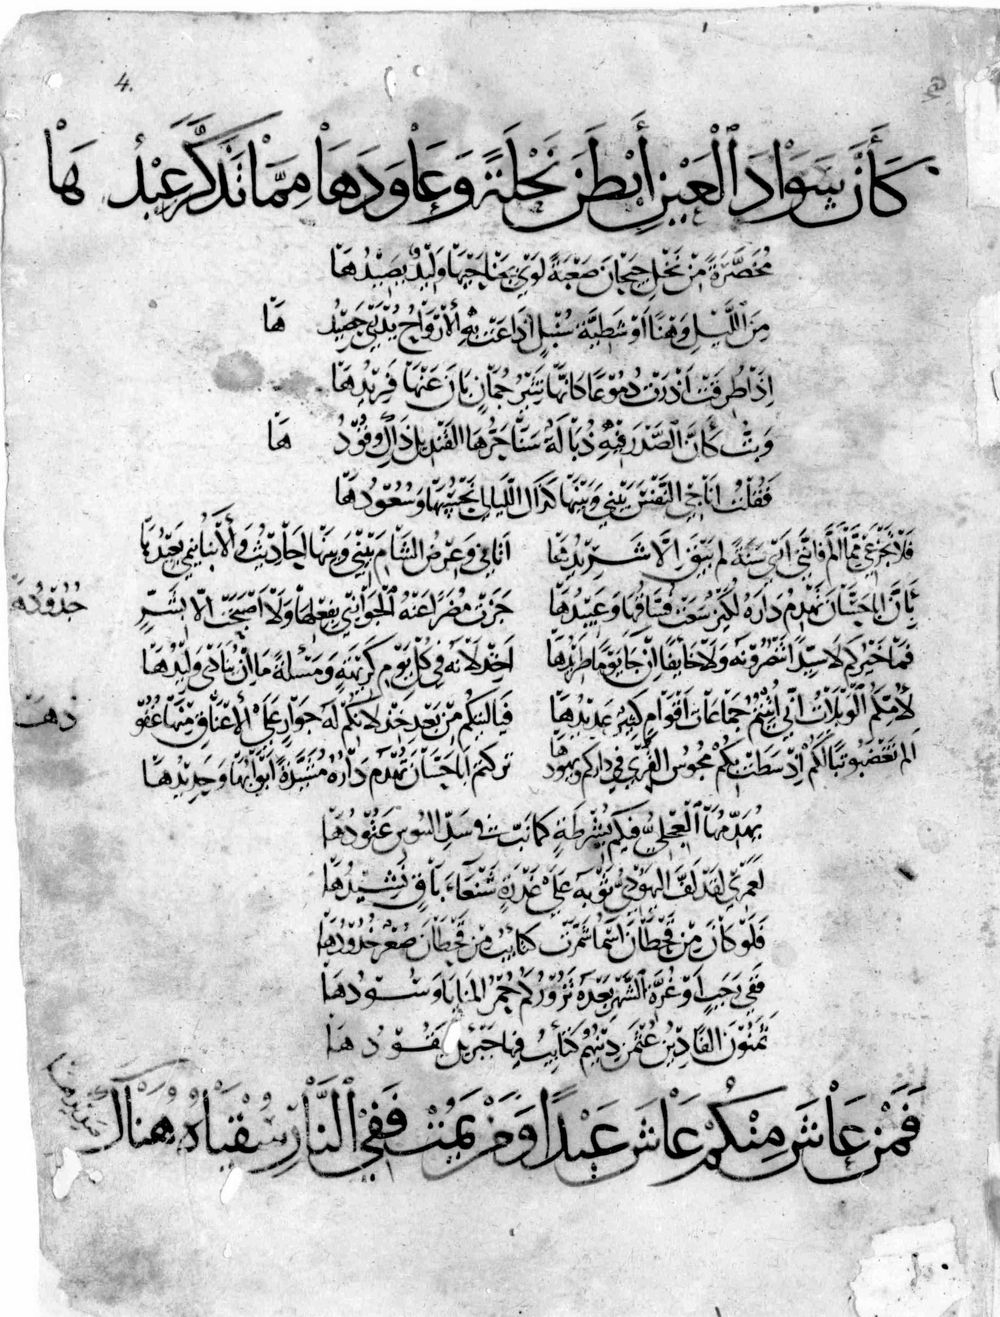 4.
كَأَنَّ سَوَادَ الْعَيْنِ أَبْطَنَ نَحْلَةً وَعَاوَدَهَا مِمَّا تَذَكَّرَ عَبْدُ هَا
مُخَصَّرَةً مِنْ نَحْلِ جَيْحَانَ صَعْبَةً لَوَى بِجَنَاحَيْهَا وَلِيْدٌ يَصِيْدُهَا
مِنَ اللَّيْلِ وَهْنًا أَوْ شَظِيَّةَ سُنْبُلٍ أَذَاعَتْ بِهِ الْأَرْوَاحُ يُذْرَى حَصِيْدُ هَا
إِذَا طُرِفَتْ أَذْرَتْ دُمُوْعًا كَأَنَّهَا نَثِيْرُ جُمَانٍ بَانَ عَنْهَا فَرِيْدُهَا
وَبِتُّ كَأَنَّ الصَّدْرَ فِيْهِ ذُبَالَةٌ سَنَا حَرِّهَا الْقِنْدِيْلُ ذَاكٍ وَقُوْدُ هَا
فَقُلْتُ أُنَاجِي النَّفْسَ بَيْنِي وَبَيْنَهَا كَذَاكَ اللَّيَالِي نَحْسُهَا وَسُعُوْدُهَا
فَلَا تَجْزَعِي مِمَّا أَلَمَّ فَإِنَّنِي أَرَى سَنَةً لَمْ يَبْقَ إِلَّا شَرِيْدُهَا أَتَانِي وَعَرْضُ الشَّامِ بَيْنِي وَبَيْنَهَا أَحَادِيْثُ وَالْأَنْبَاءُ يَنْمِي بَعِيْدُهَا
بِأَنَّ أَبَا حَسَّانَ تَهْدِمُ دَارَهُ لُكَيْزٌ سَعَتْ فُسَّاقُهَا وَعَبِيْدُهَا جَزَتْ مُضَرًا عَنْهُ الْجَوَازِي بِفِعْلِهَا وَلَا أَصْبَحَتْ إِلَّا بِشَرٍّ جُدُوْدُهَا
فَمَا خَيْرُكُمْ لَا سَيِّدًا تَنْصُرُوْنَهُ وَلَا خَائِفًا إِنْ جَاءَ يَوْمًا طَرِيْدُهَا أَخِذْلَانَهُ فِي كُلِّ يَوْمِ كَرِيْهَةٍ وَمَسْأَلَةٍ مَا إِنْ يُنَادَى وَلِيْدُهَا
لِأُمِّكُمُ الْوَيْلَاتُ أَنَّى أُتِيْتُمُ جَمَاعَاتُ أَقْوَامٍ كَثِيْرٍ عَدِيْدُهَا فَيَا لَيْتَكُمْ مِنْ بَعْدِ خِذْلَانِكُمْ لَهُ جَوَارٍ عَلَى الْأَعْنَاقِ مِنْهَا عُقُوْ دُهَا
أَلَمْ تَغْضَبُوا تَبًّا لَكُمْ إِذْ سَطَتْ بِكُمْ مَجُوْسُ الْقُرَى فِي دَارِكُمْ وَيَهُوْدُهَا تَرَكْتُمْ أَبَا حَسَّانَ تُهْدَمُ دَارُهُ مُشَيَّدَةً أَبْوَابُهَا وَحَدِيْدُهَا
يُهَدِّمُهَا الْعِجْلِيُّ فِيْكُمْ بِشُرْطَةٍ كَمَا نَبَّ فِي سَبْلِ التُّيُوْسِ عَتُوْدُهَا
لَعَمْرِي لَقَدْ لَفَّ الْيَهُوْدِيُّ ثَوْبَهُ عَلَى غَدْرَةٍ شَنْعَاءَ بَاقٍ نَشِيْدُهَا
فَلَوْ كَانَ مِنْ قَحْطَانَ أَسْمَاءُ شَمَّرَتْ كَتَائِبُ مِنْ قَحْطَانَ صُعْرٌ خُدُوْدُهَا
فَفِي رَجَبٍ أَوْ غُرَّةِ الشَّهْرِ بَعْدَهُ تَزُوْرُكُمْ حُمْرُ الْمَنَايَا وَسُوْدُهَا
ثَمَانُوْنَ أَلْفًا دِيْنُ عُثْمَانَ دِيْنُهُمْ كَتَائِبُ فِيْهَا جَبْرَئِيْلُ يَقُوْدُ هَا
فَمَنْ عَاشَ مِنْكُمْ عَاشَ عَبْدًا وَمَنْ يَمُتْ فَفِي النَّارِ سُقْيَاهُ هُنَاكَ صَدِيْدُهَا